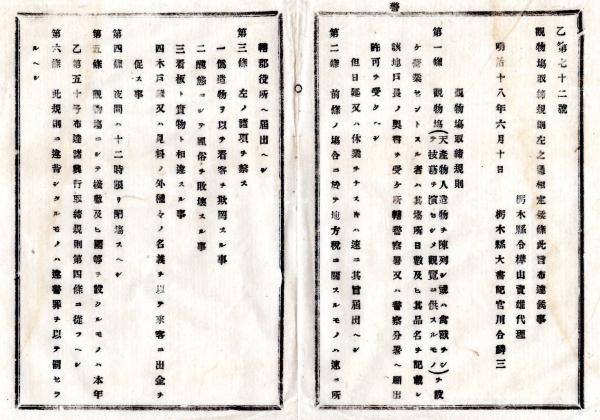 警
乙第七十二號
觀物塲取締規則左之通相定候條此旨布達候事
栃木縣令樺山資雄代理
明治十八年六月十日　栃木縣大書記官川合鱗三
觀物塲取締規則
第一條　觀物塲（天産物人造物ヲ陳列シ或ハ禽獸ヲシテ技藝ヲ演セシメ觀覽ニ供スルモノ）ヲ設
ケ營業セントスル者ハ其塲所日數及ヒ其品名ヲ記載シ
該地戸長ノ奧書ヲ受ケ所轄警察署又ハ警察分署ヘ願出
許可ヲ受クヘシ
但日延又ハ休業ヲナストキハ速ニ其旨届出ヘシ
第二條　前條ノ塲合ニ於テ地方税ニ關スルモノハ速ニ所
轄郡役所ヘ届出ヘシ
第三條　左ノ諸項ヲ禁ス
一僞造物ヲ以テ看客ヲ欺罔スル事
二醜態ニシテ風俗ヲ敗壞スル事
三看板ト實物ト相違スル事
四木戸錢又ハ見料ノ外種々ノ名義ヲ以テ來客ニ出金ヲ
促ス事
第四條　夜間ハ十二時限リ閉塲スヘシ
第五條　觀物塲ニシテ棧敷及ヒ圍等ヲ設クルモノハ本年
乙第五十號布達諸興行取締規則第四條ニ從フヘシ
第六條　此規則ニ違背シタルモノハ違警罪ヲ以テ罰セラ
ルヘシ